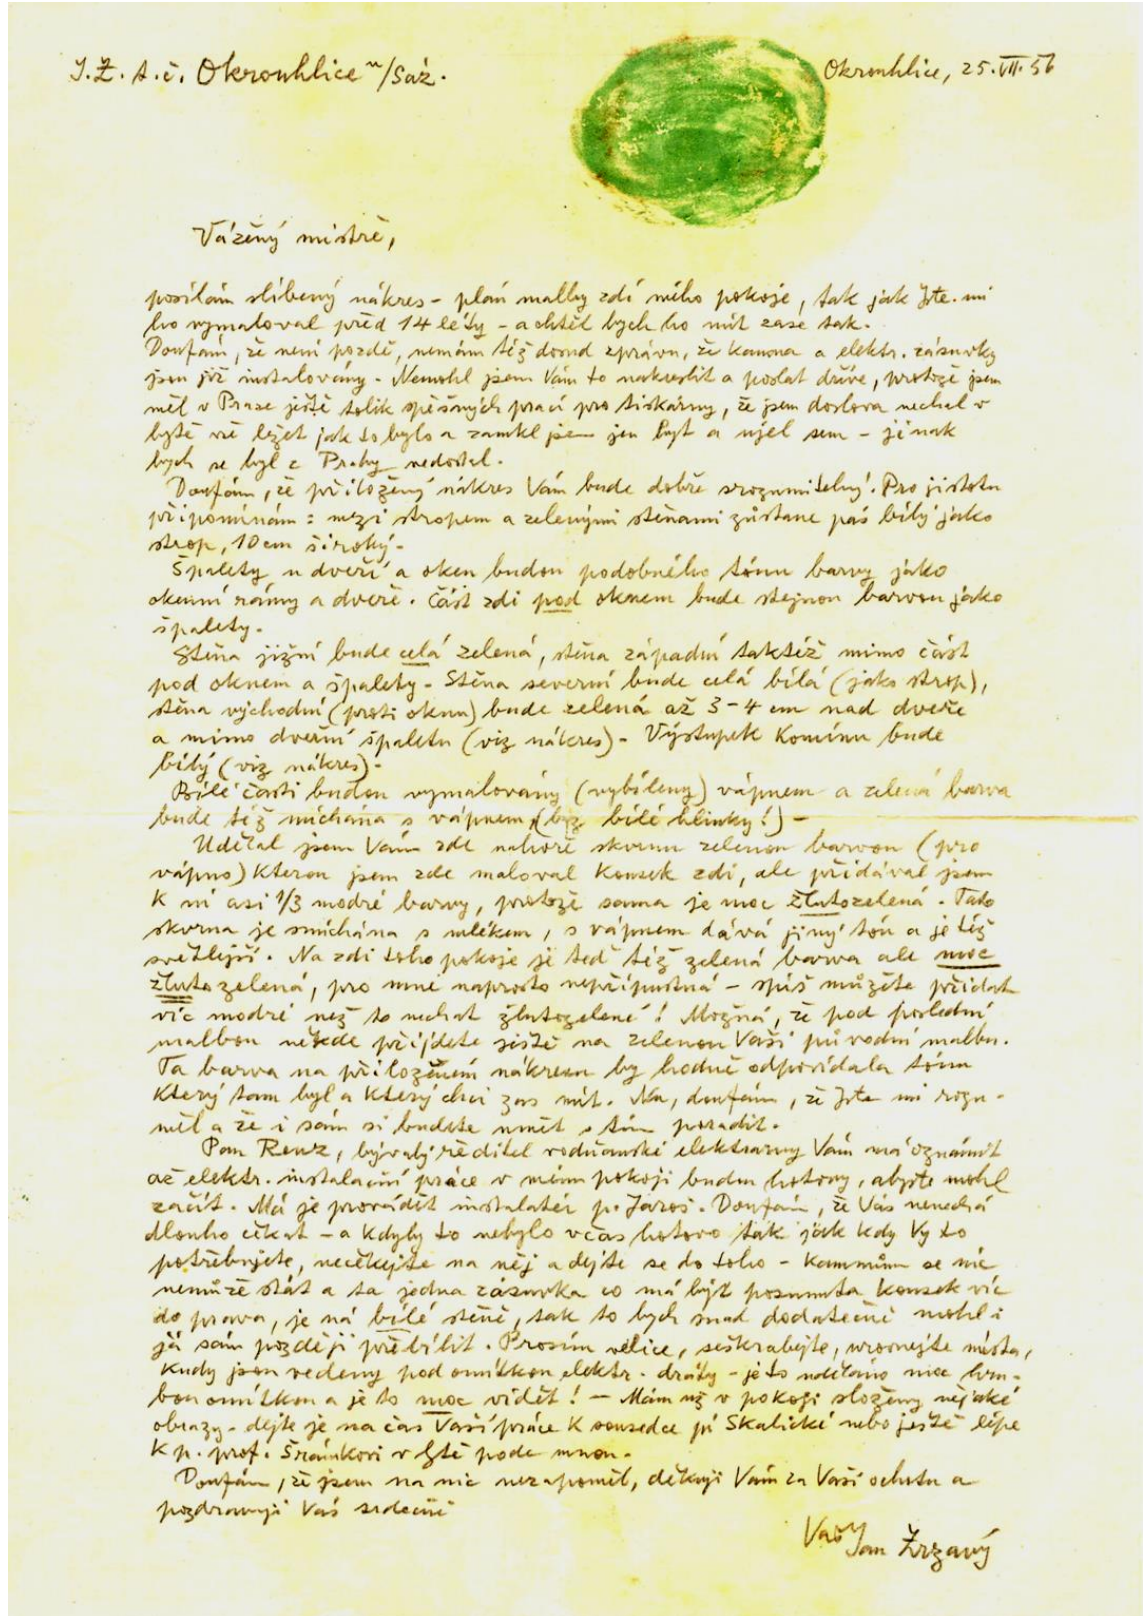 J.Z. t.č. Okrouhlice n/Sáz.
Okrouhlice, 25.VII.56
Vážený mistře,
posílám slíbený nákres - plán malby zdí mého pokoje, tak jak jste mi
ho vymaloval před 14 lety - a chtěl bych ho mít zase tak.
Doufám, že není pozdě, nemám též dosud zprávu, že kamna a elektr. zásuvky
jsou již instalovány. Nemohl jsem Vám to nakreslit a poslat dříve, protože jsem
měl v Praze ještě tolik spěšných prací pro tiskárny, že jsem doslova nechal v
bytě vše ležet jak to bylo a zamkl jsem jen byt a ujel sem - jinak
bych se byl z Prahy nedostal.
Doufám, že přiložený nákres Vám bude dobře srozumitelný. Pro jistotu
připomínám: mezi stropem a zelenými stěnami zůstane pás bílý jako
strop, 10 cm široký.
Špalety u dveří a oken budou podobného tónu barvy jako
okenní rámy a dveře. Část zdi pod oknem bude stejnou barvou jako
špalety.
Stěna jižní bude celá zelená, stěna západní taktéž mimo část
pod oknem a špalety. Stěna severní bude celá bílá (jako strop),
stěna východní (proti oknu) bude zelená až 3-4 cm nad dveře
a mimo dveřní špaletu (viz nákres). Výstupek komínu bude
bílý (viz nákres).
Bílé části budou vymalovány (vybíleny) vápnem a zelená barva
bude též míchána s vápnem (bez bílé hlinky!) -
Udělal jsem Vám zde nahoře skvrnu zelenou barvou (pro
vápno) kterou jsem zde maloval kousek zdi, ale přidával jsem
k ní asi 1/3 modré barvy, protože sama je moc žlutozelená. Tato
skvrna je smíchána s mlékem, s vápnem dává jiný tón a je též
světlejší. Na zdi toho pokoje je teď též zelená barva ale moc
žlutozelená, pro mne naprosto nepřípustná - spíš můžete přidat
víc modré než to nechat žlutozelené! Možná, že pod poslední
malbou někde přijdete ještě na zelenou Vaší původní malbu.
Ta barva na přiloženém nákresu by hodně odpovídala tónu
který tam byl a který chci zas mít. Nu, doufám, že jste mi rozu-
měl a že i sám si budete umět s tím poradit.
Pan Renz, bývalý ředitel vodňanské elektrárny Vám má oznámit
až elektr. instalační práce v mém pokoji budou hotovy, abyste mohl
začít. Má je provádět instalatér p. Jaroš. Doufám, že Vás nenechá
dlouho čekat - a kdyby to nebylo včas hotovo tak jak kdy Vy to
potřebujete, nečekejte na něj a dejte se do toho - kamnům se nic
nemůže stát a ta jedna zásuvka co má být posunuta kousek víc
do prava, je na bílé stěně, tak to bych snad dodatečně mohl i
já sám později přebílit. Prosím velice, seškrabejte, urovnejte místa,
kudy jsou vedeny pod omítkou elektr. dráty - je to uděláno moc hru-
bou omítkou a je to moc vidět! - Mám už v pokoji složeny nějaké
obrazy - dejte je na čas Vaší práce k sousedce pí Skalické nebo ještě lépe
k p. prof. Šrámkovi v bytě pode mnou.
Doufám, že jsem na nic nezapomněl, děkuji Vám za Vaši ochotu a
pozdravuji Vás srdečně
Váš Jan Zrzavý